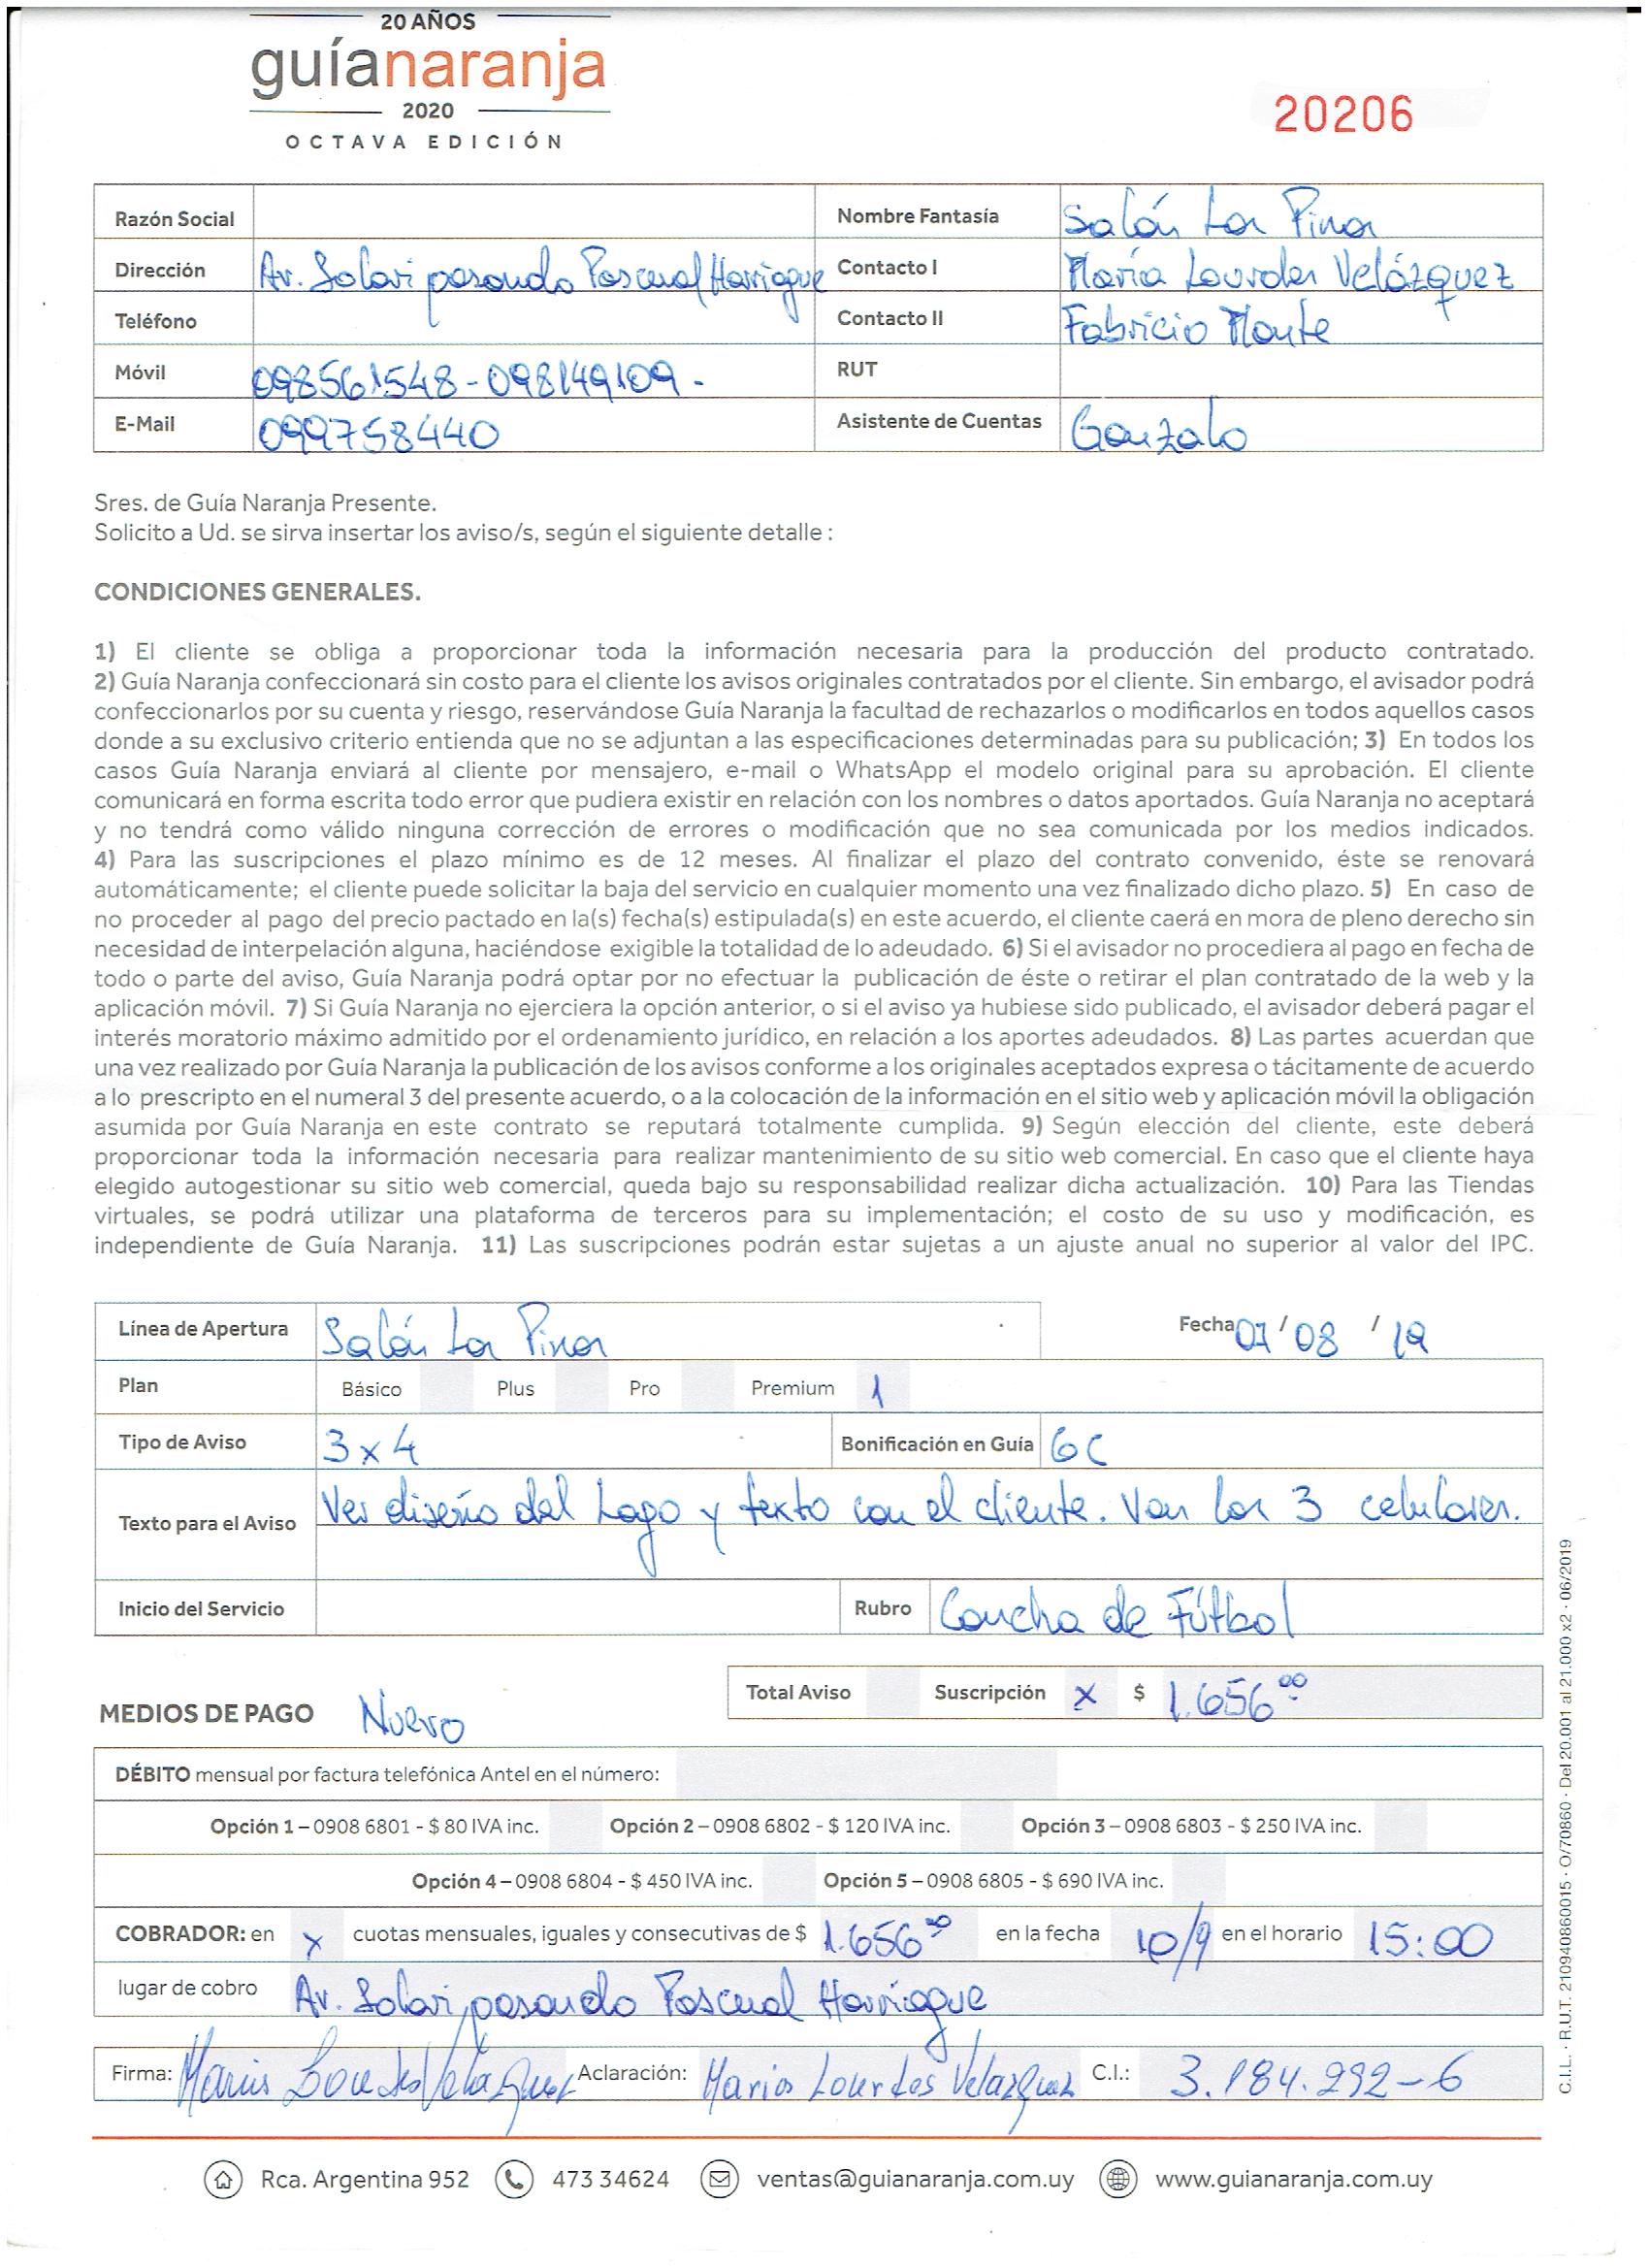 20 AÑOS
guíanaranja
2020
OCTAVA EDICIÓN
20206
Razón Social
Nombre Fantasía Salón La Pina
Dirección Av. Solari pasando Pascual Harriague
Contacto I María Lourdes Velázquez
Teléfono
Contacto II Fabricio Monte
Móvil 098561548-098149109-
RUT
E-Mail 099758440
Asistente de Cuentas Gonzalo
Sres. de Guía Naranja Presente.
Solicito a Ud. se sirva insertar los aviso/s, según el siguiente detalle :
CONDICIONES GENERALES.
1) El cliente se obliga a proporcionar toda la información necesaria para la producción del producto contratado.
2) Guía Naranja confeccionará sin costo para el cliente los avisos originales contratados por el cliente. Sin embargo, el avisador podrá
confeccionarlos por su cuenta y riesgo, reservándose Guía Naranja la facultad de rechazarlos o modificarlos en todos aquellos casos
donde a su exclusivo criterio entienda que no se adjuntan a las especificaciones determinadas para su publicación; 3) En todos los
casos Guía Naranja enviará al cliente por mensajero, e-mail o WhatsApp el modelo original para su aprobación. El cliente
comunicará en forma escrita todo error que pudiera existir en relación con los nombres o datos aportados. Guía Naranja no aceptará
y no tendrá como válido ninguna corrección de errores o modificación que no sea comunicada por los medios indicados.
4) Para las suscripciones el plazo mínimo es de 12 meses. Al finalizar el plazo del contrato convenido, éste se renovará
automáticamente; el cliente puede solicitar la baja del servicio en cualquier momento una vez finalizado dicho plazo. 5) En caso de
no proceder al pago del precio pactado en la(s) fecha(s) estipulada(s) en este acuerdo, el cliente caerá en mora de pleno derecho sin
necesidad de interpelación alguna, haciéndose exigible la totalidad de lo adeudado. 6) Si el avisador no procediera al pago en fecha de
todo o parte del aviso, Guía Naranja podrá optar por no efectuar la publicación de éste o retirar el plan contratado de la web y la
aplicación móvil. 7) Si Guía Naranja no ejerciera la opción anterior, o si el aviso ya hubiese sido publicado, el avisador deberá pagar el
interés moratorio máximo admitido por el ordenamiento jurídico, en relación a los aportes adeudados. 8) Las partes acuerdan que
una vez realizado por Guía Naranja la publicación de los avisos conforme a los originales aceptados expresa o tácitamente de acuerdo
a lo prescripto en el numeral 3 del presente acuerdo, o a la colocación de la información en el sitio web y aplicación móvil la obligación
asumida por Guía Naranja en este contrato se reputará totalmente cumplida. 9) Según elección del cliente, este deberá
proporcionar toda la información necesaria para realizar mantenimiento de su sitio web comercial. En caso que el cliente haya
elegido autogestionar su sitio web comercial, queda bajo su responsabilidad realizar dicha actualización. 10) Para las Tiendas
virtuales, se podrá utilizar una plataforma de terceros para su implementación; el costo de su uso y modificación, es
independiente de Guía Naranja. 11) Las suscripciones podrán estar sujetas a un ajuste anual no superior al valor del IPC.
Línea de Apertura Salón La Pina
Fecha 07 / 08 / 19
Plan Básico Plus Pro Premium 1
Tipo de Aviso 3x4
Bonificación en Guía 6C
Texto para el Aviso Ver diseño del Logo y texto con el cliente. Van los 3 celulares.
Inicio del Servicio
Rubro Cancha de Fútbol
Total Aviso Suscripción x $ 1.656⁰⁰
MEDIOS DE PAGO Nuevo
DÉBITO mensual por factura telefónica Antel en el número:
Opción 1 – 0908 6801 - $ 80 IVA inc. Opción 2 – 0908 6802 - $ 120 IVA inc. Opción 3 – 0908 6803 - $ 250 IVA inc.
Opción 4 – 0908 6804 - $ 450 IVA inc. Opción 5 – 0908 6805 - $ 690 IVA inc.
COBRADOR: en x cuotas mensuales, iguales y consecutivas de $ 1.656⁰⁰ en la fecha 10/9 en el horario 15:00
lugar de cobro Av. Solari pasando Pascual Harriague
Firma: Maria Lourdes Velazquez Aclaración: Maria Lourdes Velazquez C.I.: 3.184.292-6
Rca. Argentina 952 473 34624 ventas@guianaranja.com.uy www.guianaranja.com.uy
C.I.L. · R.U.T. 210940860015 · O/70860 · Del 20.001 al 21.000 x2 · 06/2019